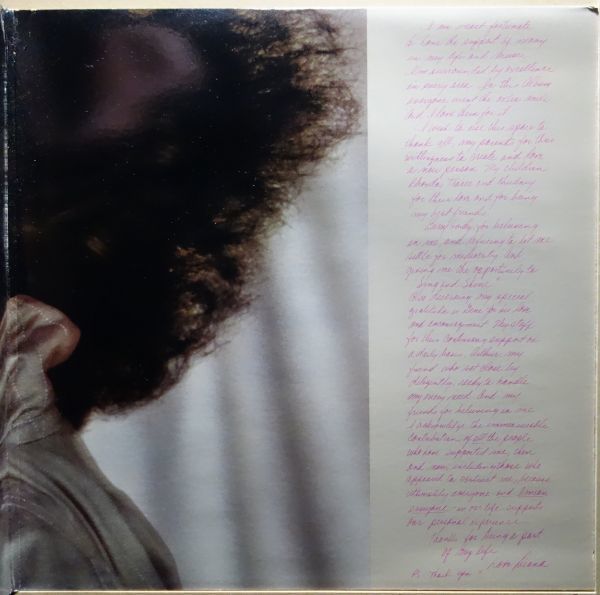 I am most fortunate
to have the support of many
in my life and music.
I'm surrounded by excellence
in every area. In this album
everyone went the extra mile
and I love them for it.
I want to use this space to
thank all, my parents for their
willingness to create and love
a new person. My children
Rhonda, Tracee and Chudney
for their love and for being
my best friends.
Berry Gordy, for believing
in me and refusing to let me
settle for mediocrity and
giving me the opportunity to
"Sing and Shine"
special
gratitude is Gene for his love
and encouragement. My staff
for their continuing support on
a daily basis. my
friend who sat close by
diligently, ready to handle
my every need. And my
friends for believing in me.
I acknowledge the immeasurable
contribution of all the people
who have supported me, then
and now, including those who
appeared to obstruct me, because
ultimately everyone and I mean
everyone in our life supports
our personal experience.
Thanks for being a part
of my life
Love Diana
Ps. Thank you